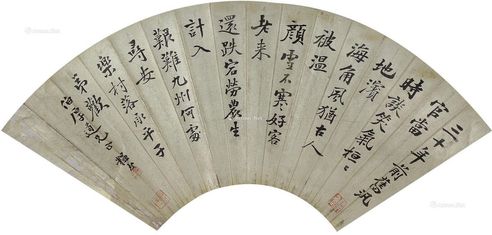 三十年前舊汎
官當時
談笑氣桓桓
地濱
海角風猶古人
被溫
顏雪不寒好客
老来
還跌宕勞農生
計入
艱難九州何處
尋安
樂村落承平子
弟歡
伯厚道兄正